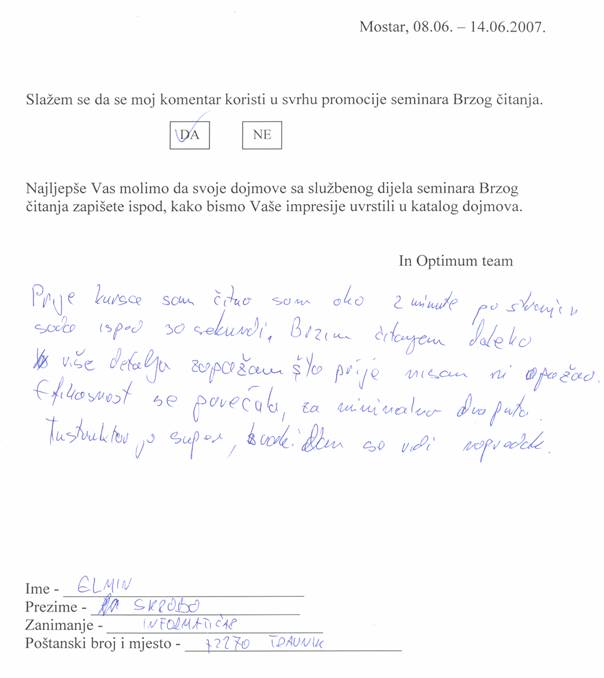 Mostar, 08.06. – 14.06.2007.
Slažem se da se moj komentar koristi u svrhu promocije seminara Brzog čitanja.
DA NE
Najljepše Vas molimo da svoje dojmove sa službenog dijela seminara Brzog
čitanja zapišete ispod, kako bismo Vaše impresije uvrstili u katalog dojmova.
In Optimum team
Prije kursa sam čitao sam oko 2 minute po stranici
sada ispod 30 sekundi. Brzim čitanjem daleko
više detalja zapažam što prije nisam ni opažao.
Efikasnost se povećala, za minimalno dva puta.
Instruktor je super, svaki dan se vidi napredak.
Ime - ELMIN
Prezime - SKROBO
Zanimanje - INFORMATIČAR
Poštanski broj i mjesto - 72270 TRAVNIK